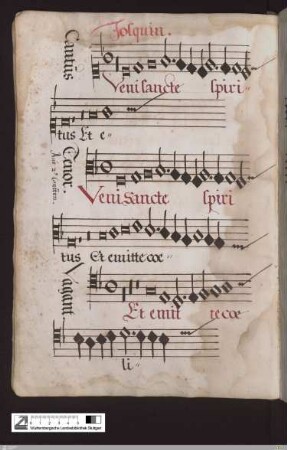 Josquin.
Cantus
Veni sancte spiri
tus Et e-
Tenor
Veni sancte spiri
tus Et emitte coe
Vagant
Et emit te coe
li-
Württembergische Landesbibliothek Stuttgart